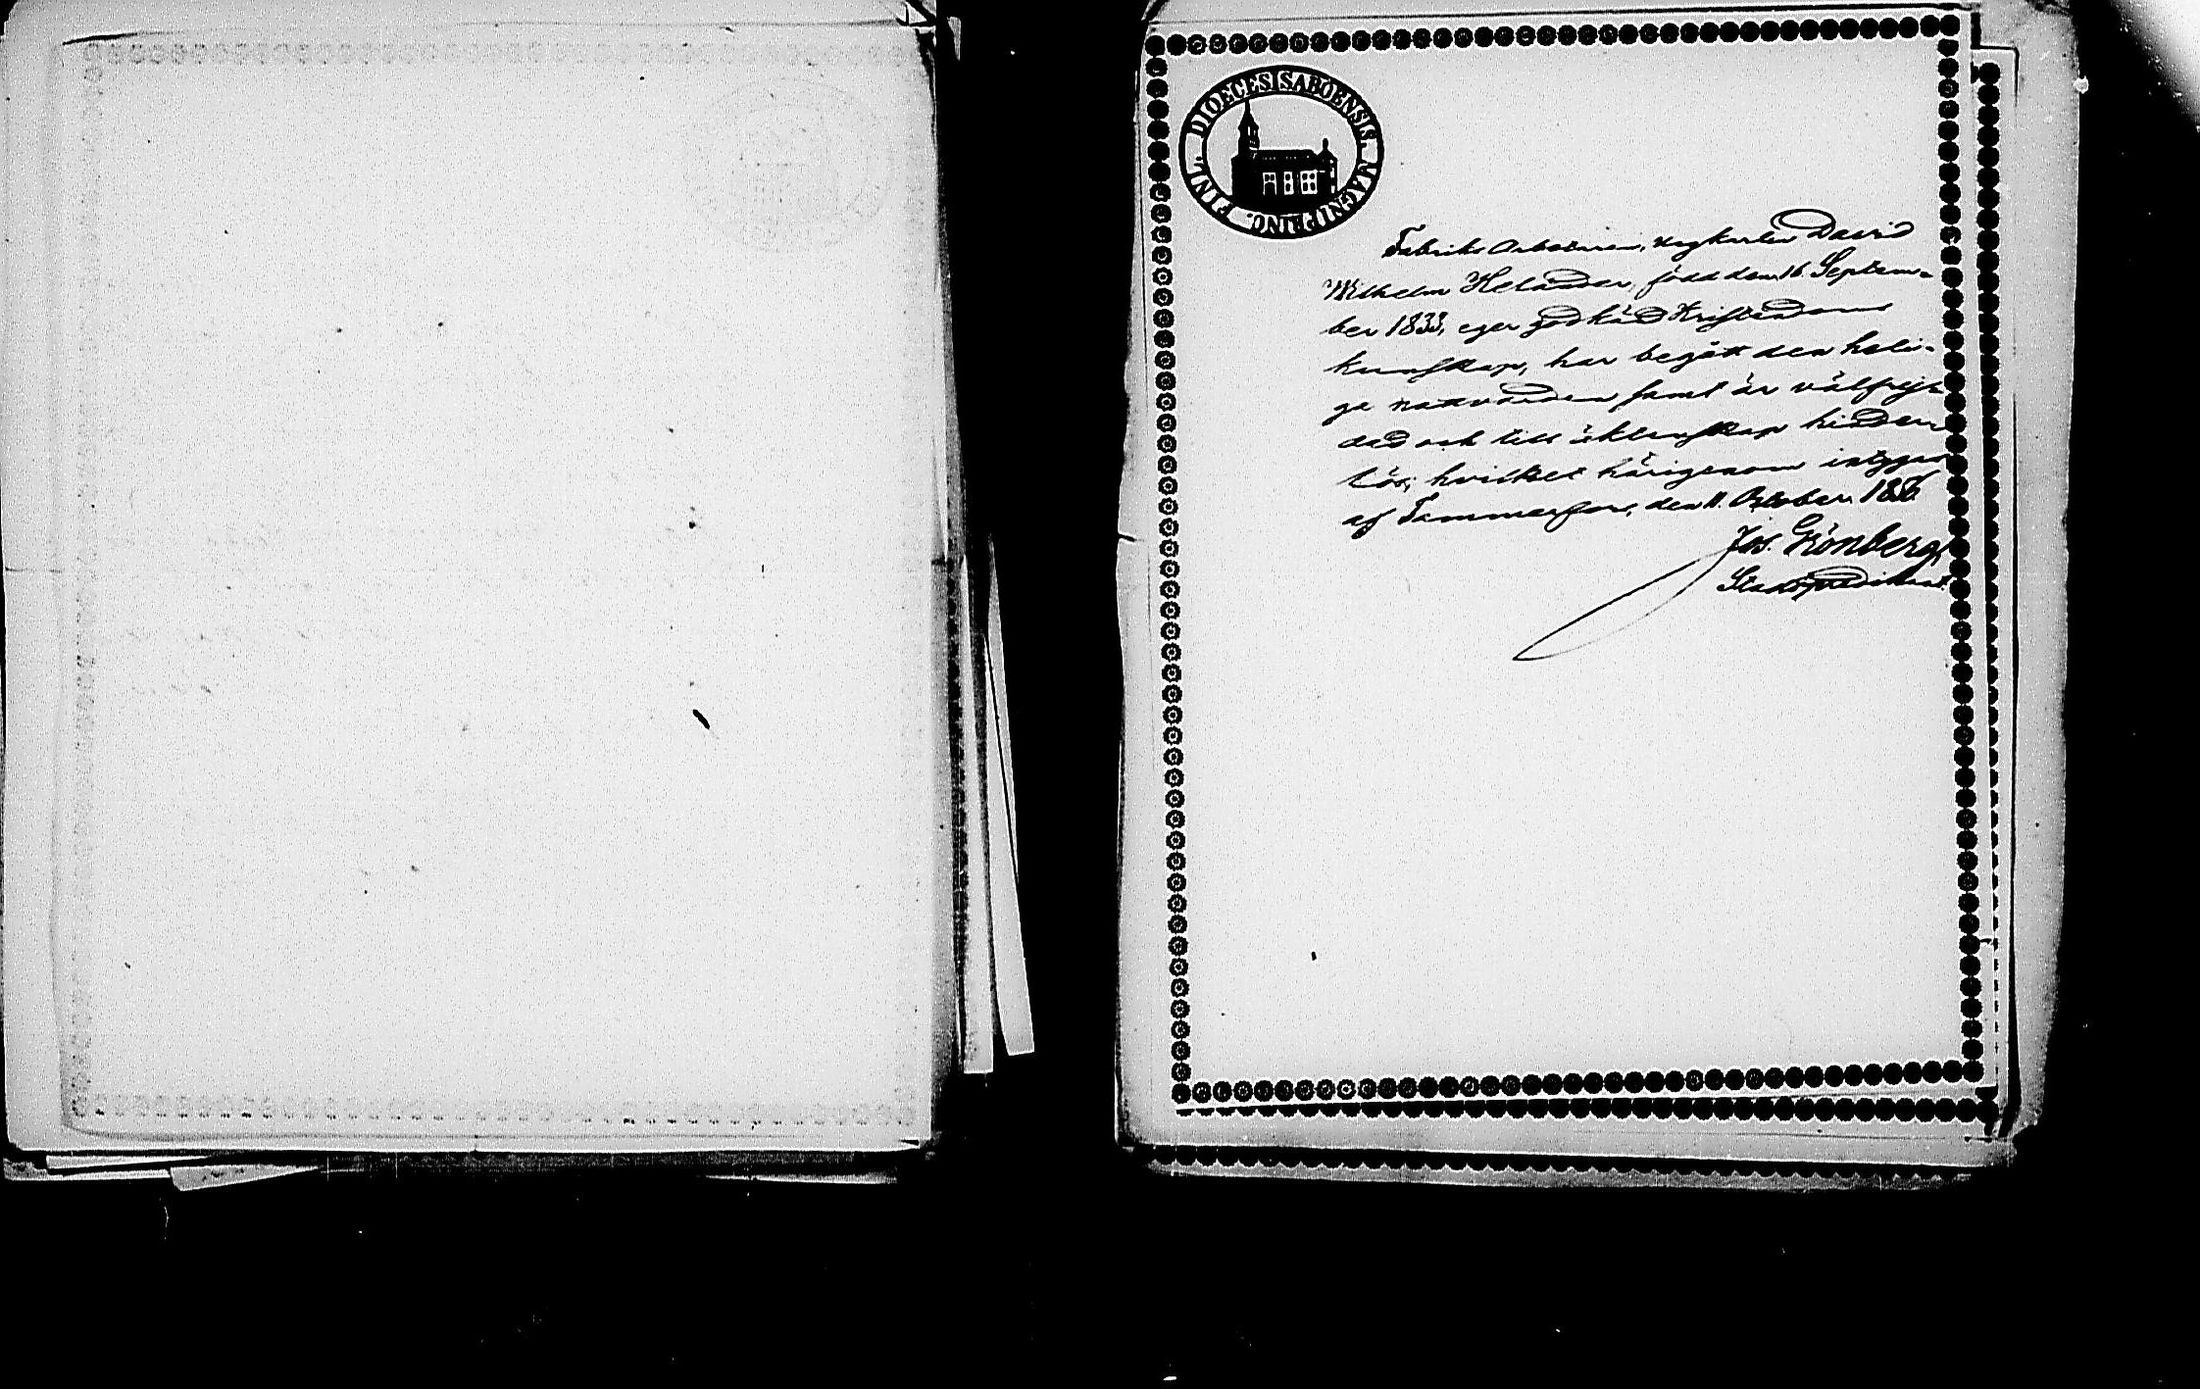 DIOECESIS ABOENSIS. MAGNI PRINC. FINL.
Fabriks Arbetaren, ungkarlen David
Wilhelm Helander, född den 16 Septem-
ber 1833, eger godkänd Kristendoms
kunskap, har begått den heli-
ga nattvarden samt är välfrejd-
dad och till äktenskap hinder-
lös; hvilket härigenom intygas
af Tammerfors, den 11. October 1856
Jos. Grönberg,
Stadspredikant.